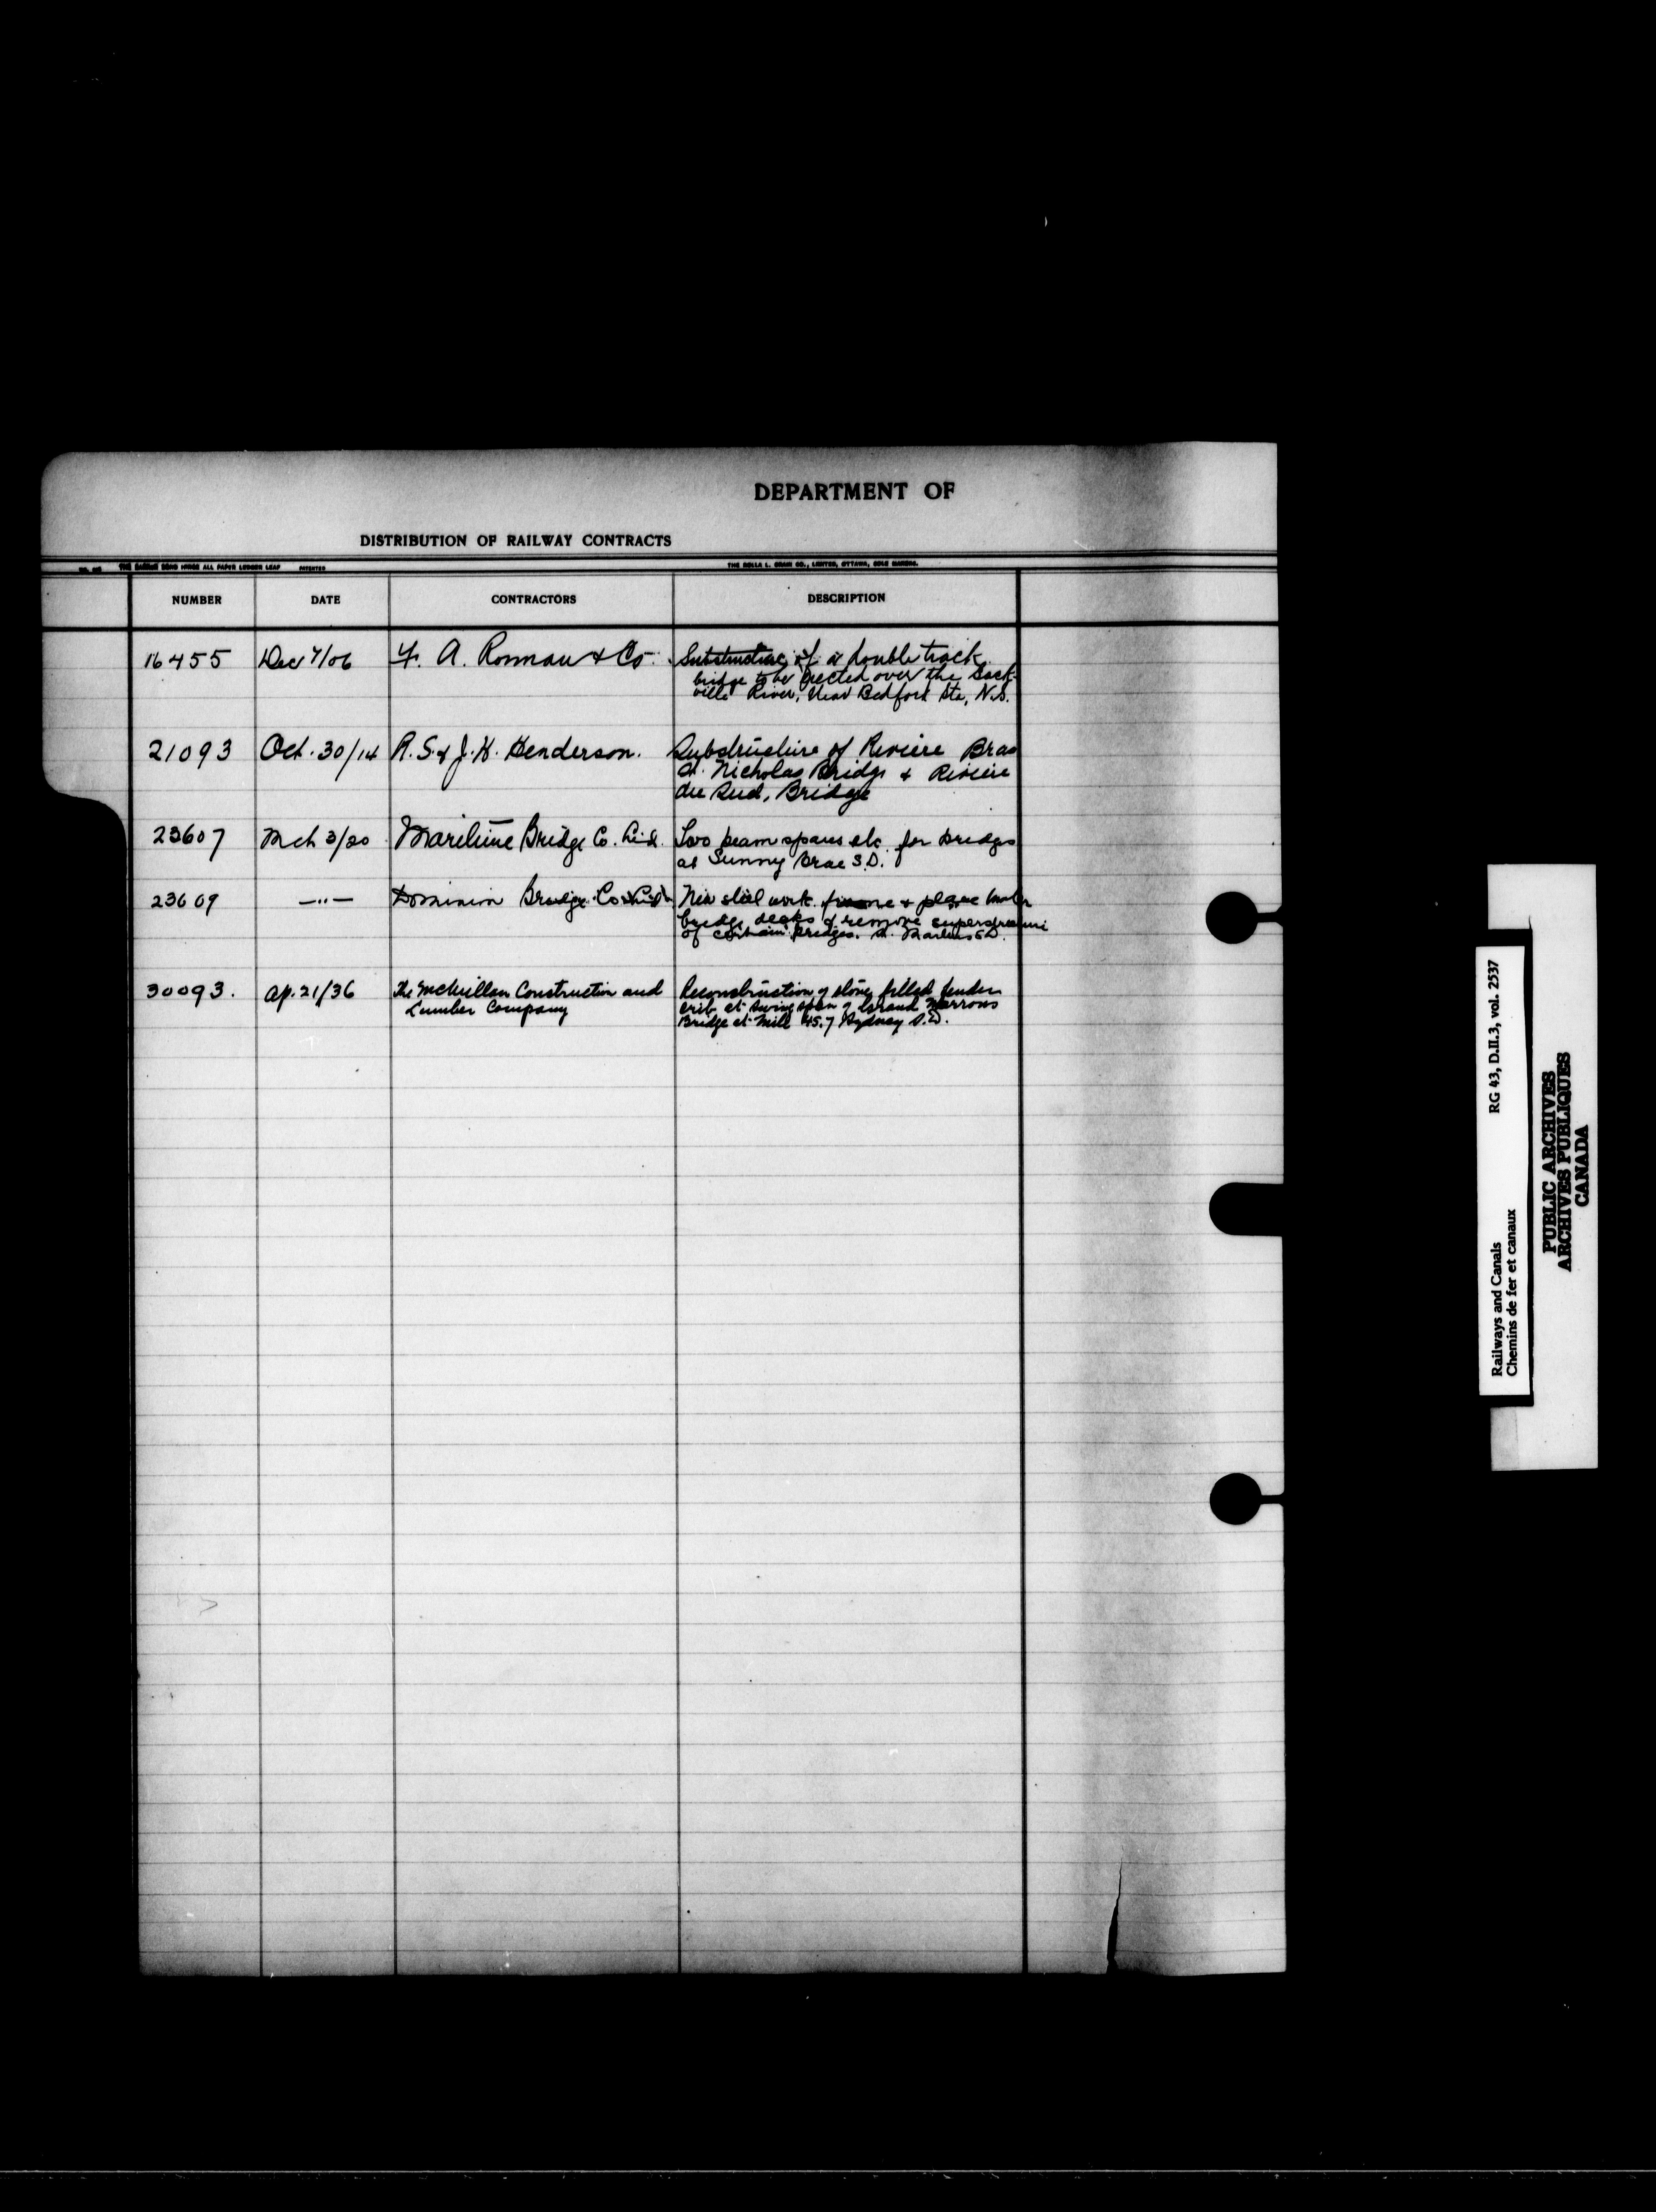 DEPARTMENT OF
DISTRIBUTION OF RAILWAY CONTRACTS
THE ROLLA L. CRAIN CO., LIMITED, OTTAWA, SOLE MAKERS.
NUMBER DATE CONTRACTORS DESCRIPTION
16455 Dec 7/06 F. A. Ronnan & Co. Substructure of a double track
bridge to be erected over the Sack-
ville River, near Bedford Sta, N.S.
21093 Oct. 30/14 R. S. & J. H. Henderson. Substructure of Riviere Bras
St. Nicholas Bridge & Riviere
du Sud, Bridge
23607 Mch 3/20 Maritime Bridge Co. Ltd. Two beam spans etc. for bridges
at Sunny Brae S.D.
23609 —"— Dominion Bridge Co Ltd New steel work & place
bridge decks & remove superstructure
of certain bridges. St. Martins S.D.
30093. Ap. 21/36 The McMillan Construction and Reconstruction of stone filled fender
Lumber Company crib at swing span of Grand Narrows
Bridge at Mill 45.7 Sydney S.D.
Railways and Canals RG 43, D.II.3, vol. 2537
Chemins de fer et canaux
PUBLIC ARCHIVES
ARCHIVES PUBLIQUES
CANADA